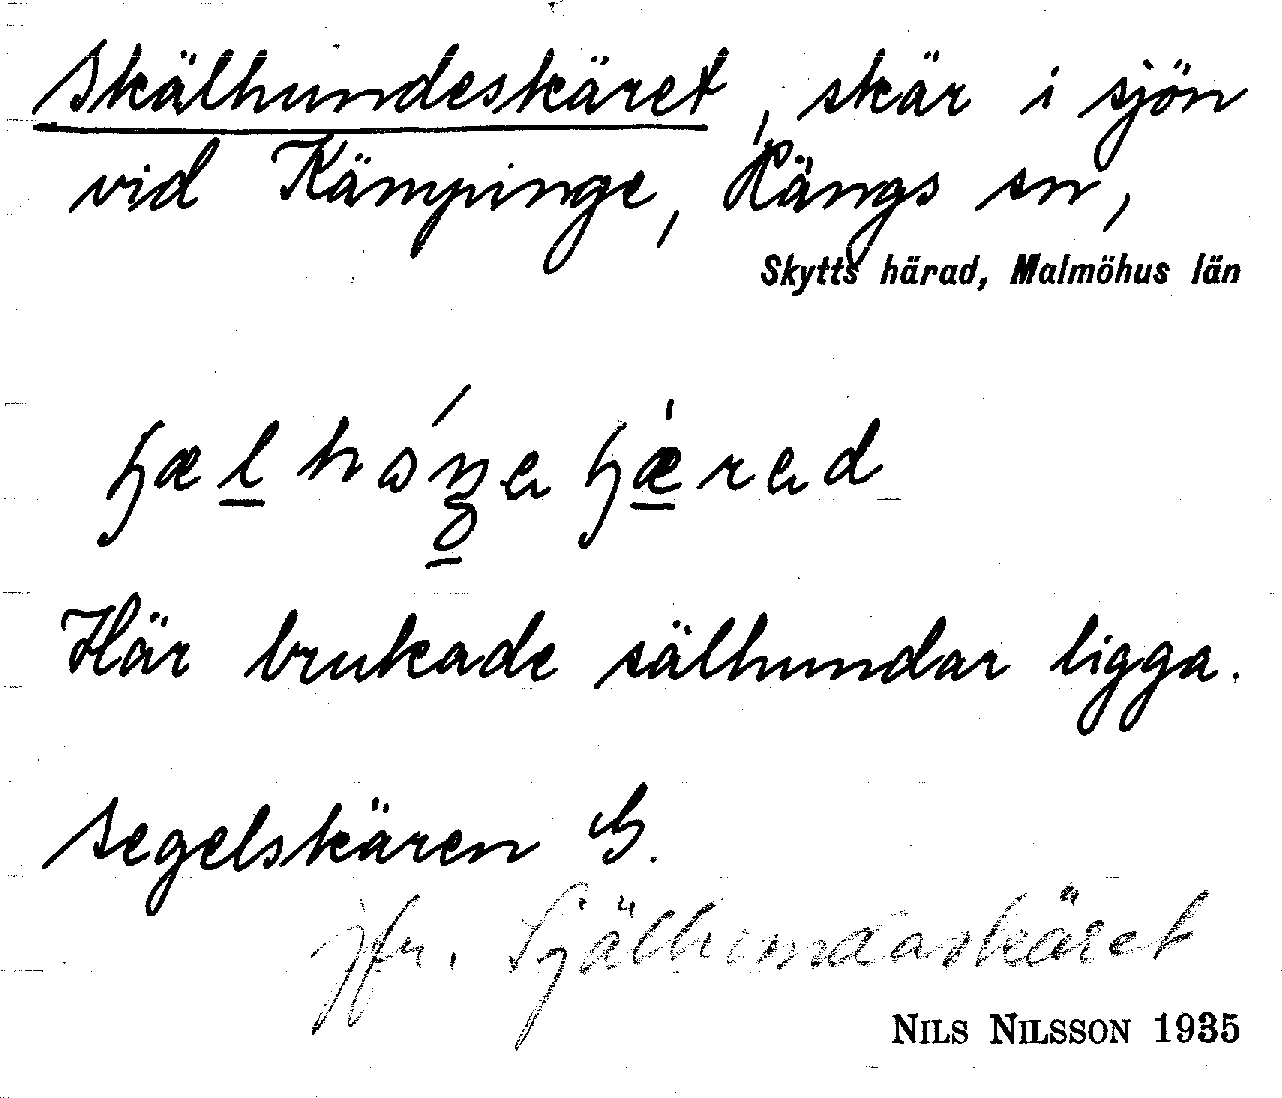 Skälhundeskäret, skär i sjön
vid Kämpinge, Hängs sn,
Skytts härad, Malmöhus län
Här brukade sälhundar ligga.
Segelskären G.
jfr. Själhundaskäret
NILS NILSSON 1935